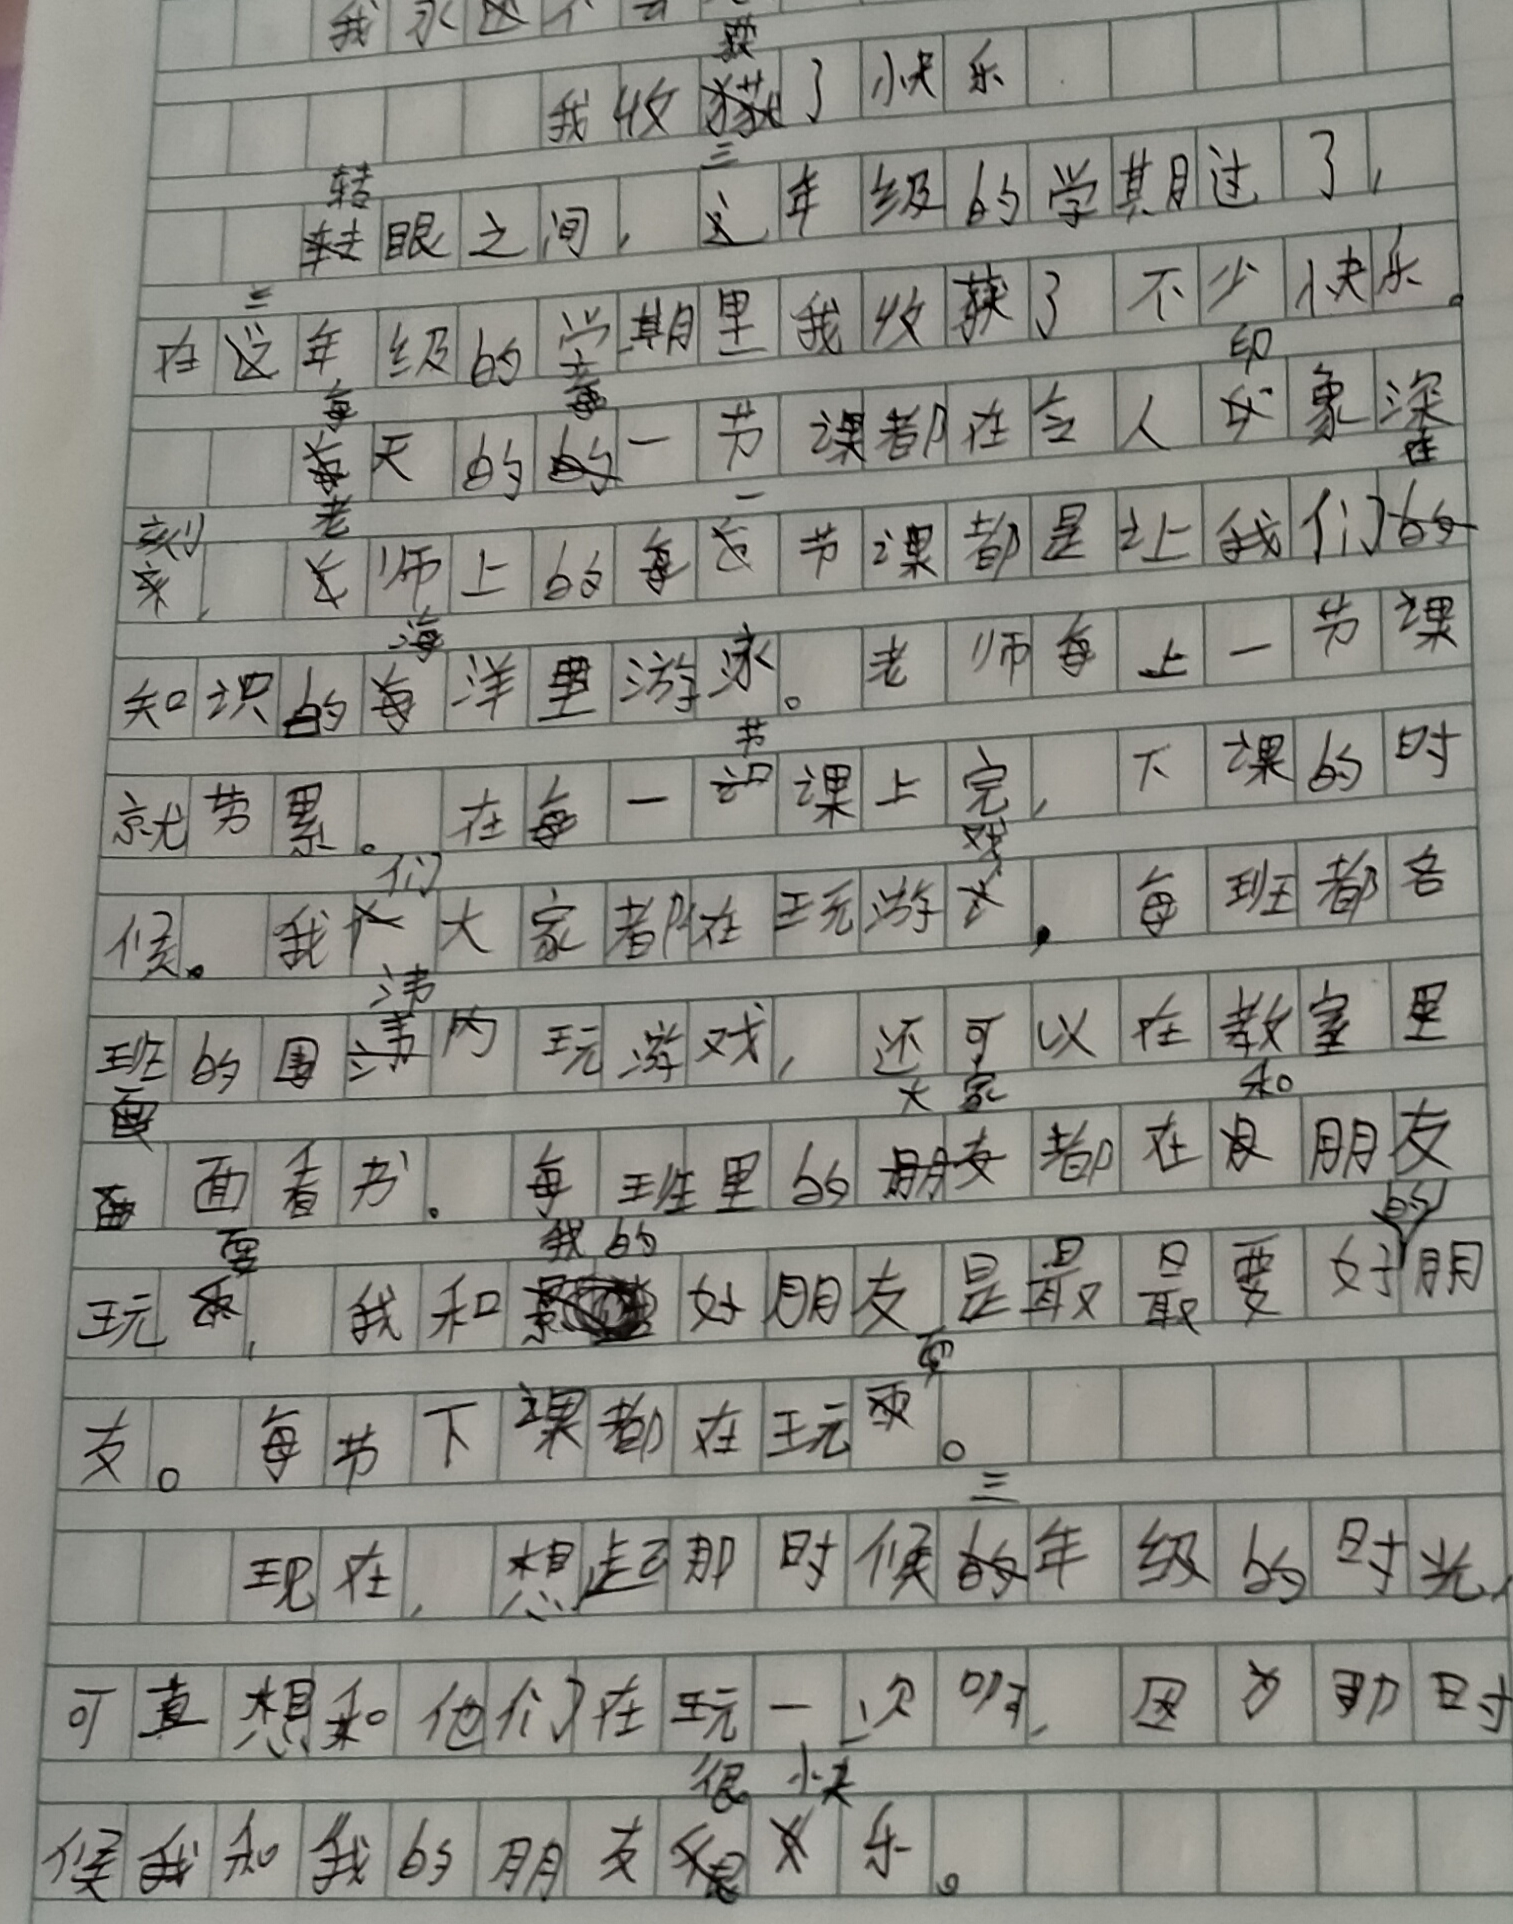 我永远不会
我收获了快乐
转眼之间，三年级的学期过了，
在三年级的学期里我收获了不少快乐。
每天的每一节课都在令人印象深
刻，老师上的每一节课都是让我们在
知识的海洋里游泳。老师每上一节课
就劳累。在每一节课上完，下课的时
候。我们大家都在玩游戏，每班都各
班的围沣内玩游戏，还可以在教室里
面看书。每班里的大家都在和朋友
玩耍，我和我的好朋友是最最要好的朋
友。每节下课都在玩耍。
现在，想起那时候三年级的时光，
可真想和他们在玩一次啊，因为那时
候我和我的朋友很快乐。